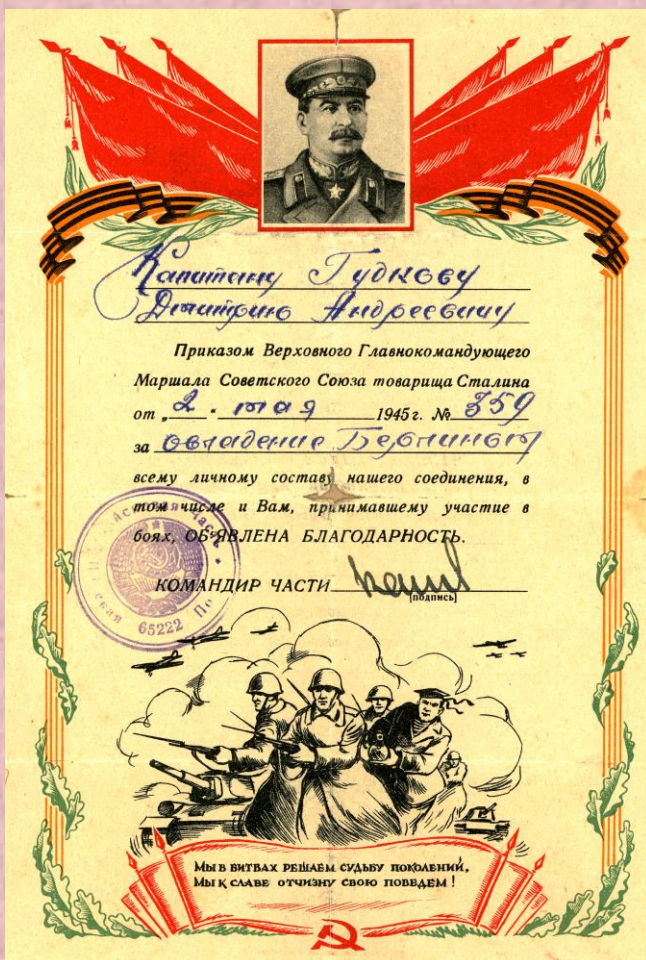 Капитану Гудкову
Дмитрию Андреевичу
Приказом Верховного Главнокомандующего
Маршала Советского Союза товарища Сталина
от „2“ мая 1945 г. № 359
за овладение Берлином
всему личному составу нашего соединения, в
том числе и Вам, принимавшему участие в
боях, ОБ'ЯВЛЕНА БЛАГОДАРНОСТЬ.
КОМАНДИР ЧАСТИ
[подпись]
65222
МЫ В БИТВАХ РЕШАЕМ СУДЬБУ ПОКОЛЕНИЙ,
МЫ К СЛАВЕ ОТЧИЗНУ СВОЮ ПОВЕДЕМ!